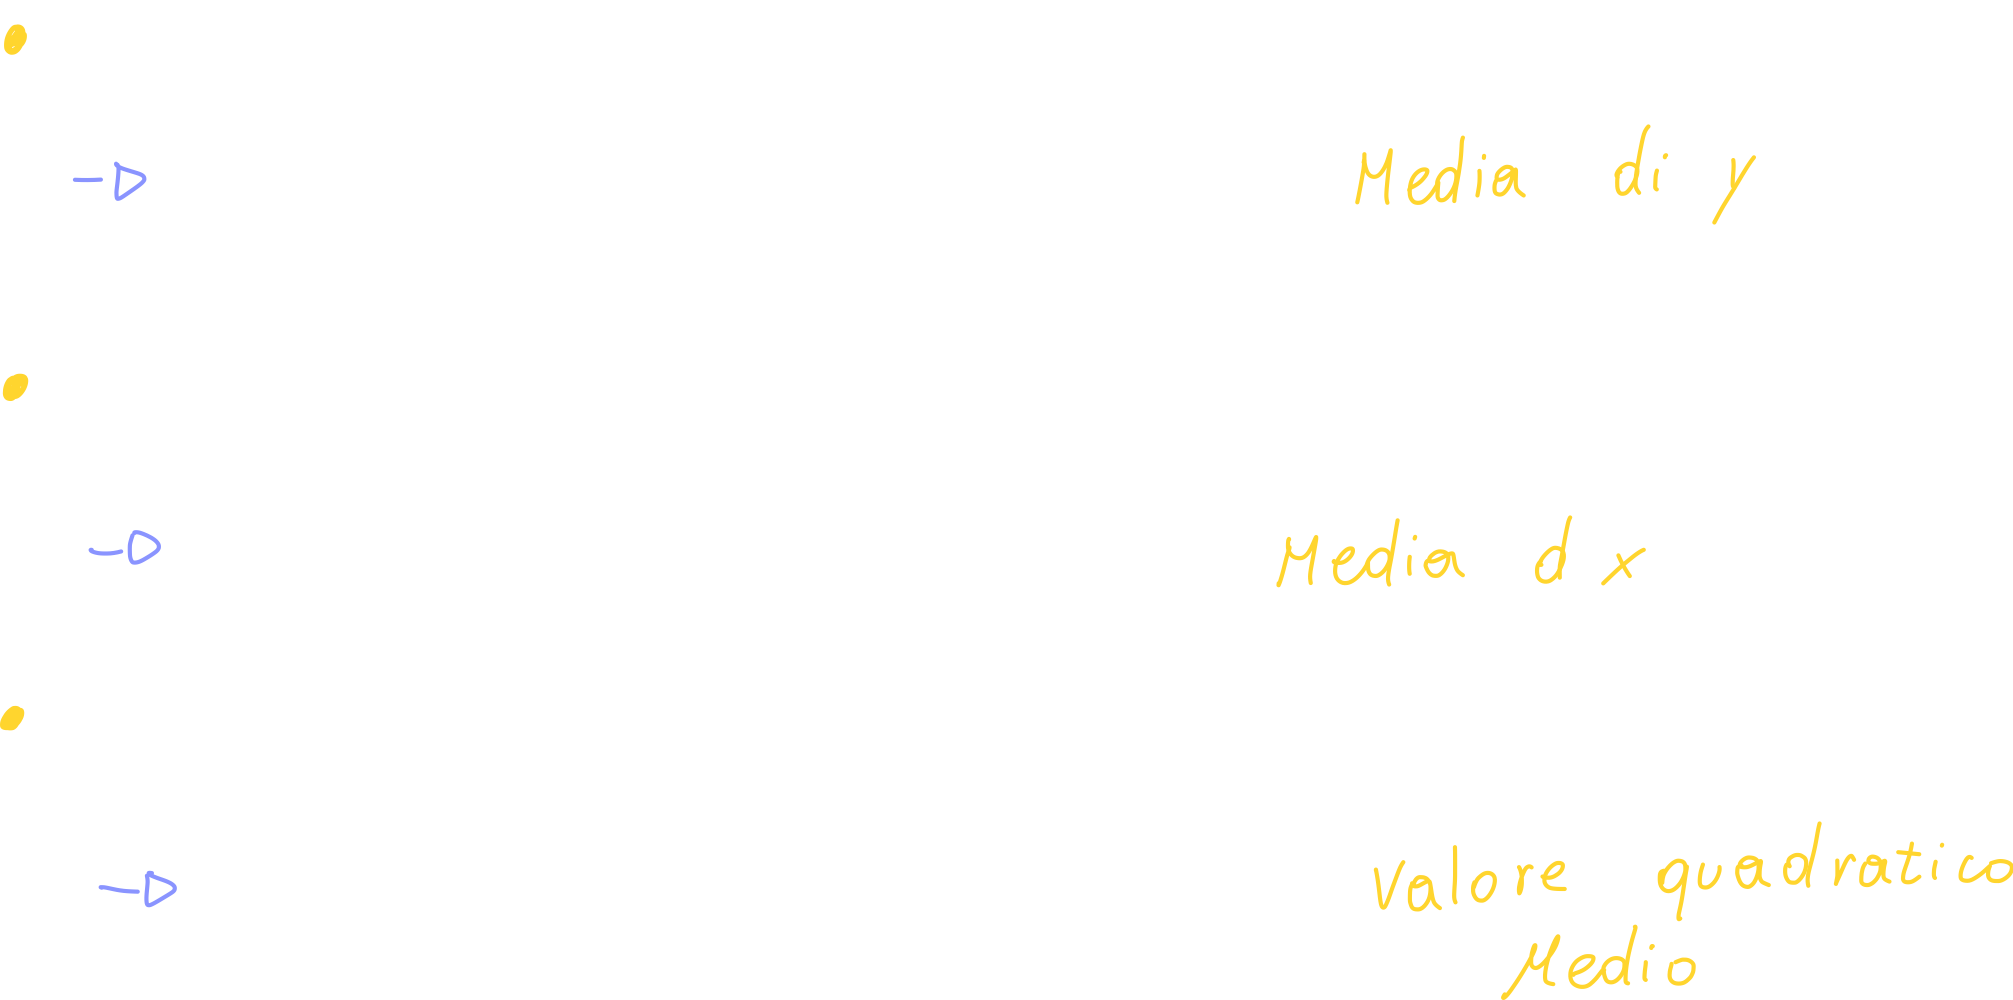 Media di y
Media d x
Valore quadratico
Medio